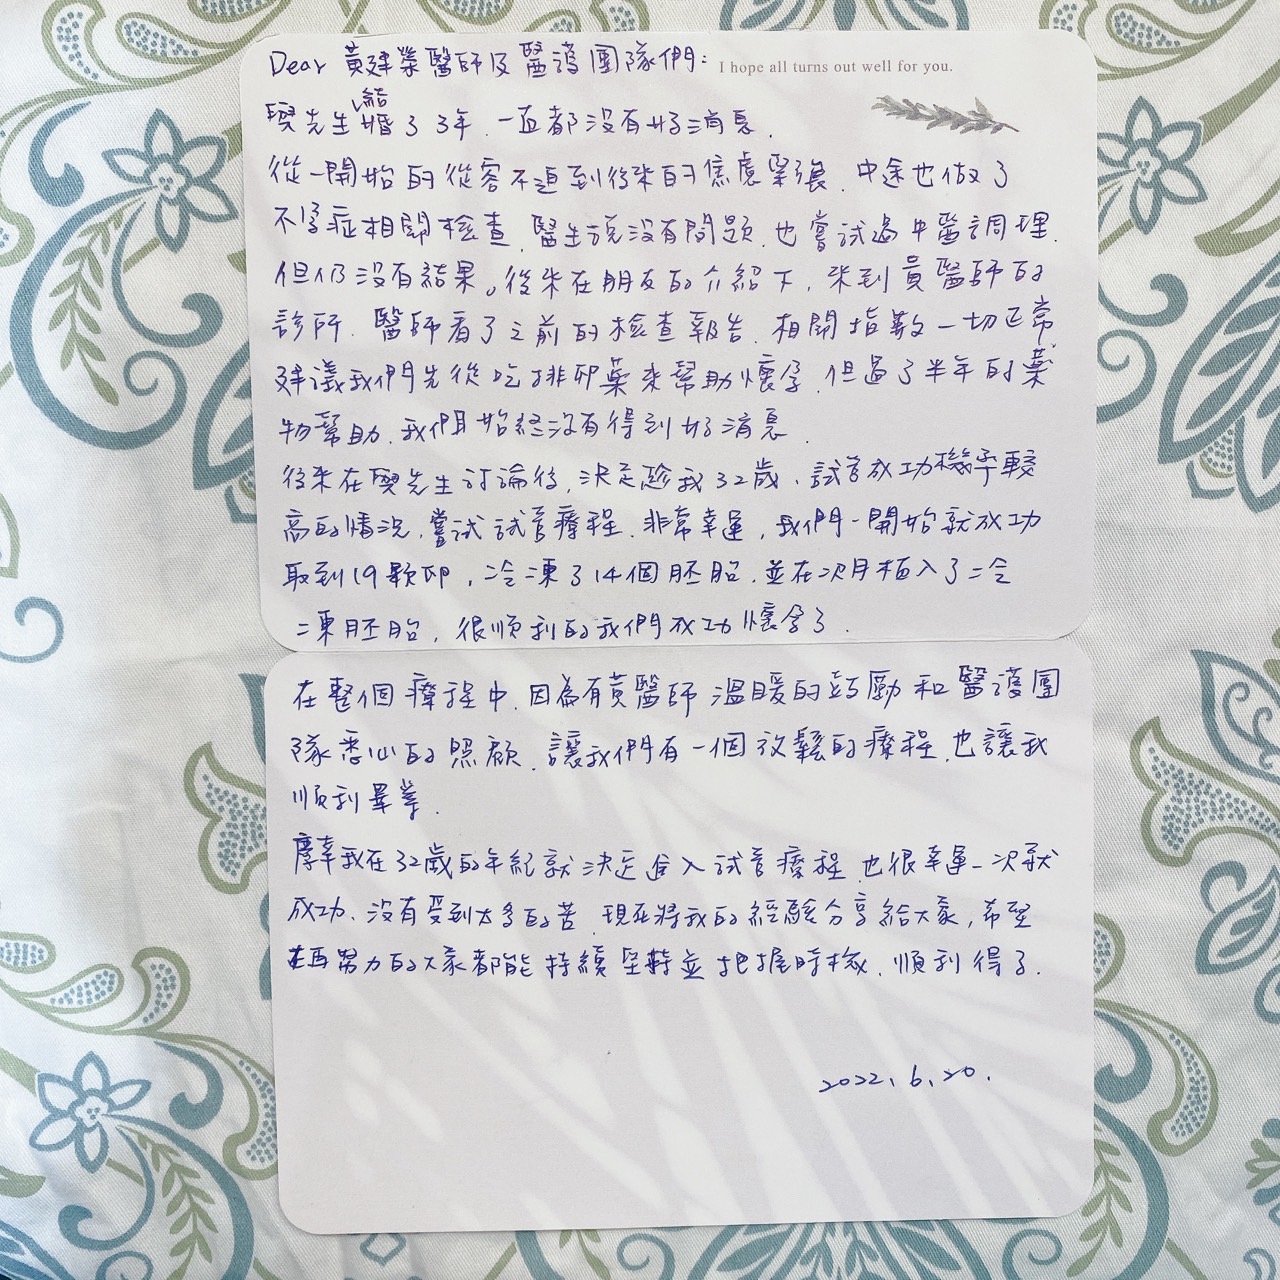 Dear 黃建榮醫師及醫護團隊們:
I hope all turns out well for you.
與先生結婚了3年、一直都沒有好消息、
從一開始的從容不迫到後來的焦慮緊張、中途也做了
不孕症相關檢查、醫生說沒有問題、也嘗試過中醫調理、
但仍沒有結果。後來在朋友的介紹下、來到黃醫師的
診所、醫師看了之前的檢查報告、相關指數一切正常
建議我們先從吃排卵藥來幫助懷孕、但過了半年的藥
物幫助、我們始終沒有得到好消息、
後來在與先生討論後、決定趁我32歲、試管成功機率較
高的情況、嘗試試管療程、非常幸運，我們一開始就成功
取到19顆卵，冷凍了14個胚胎、並在次月植入了二令
凍胚胎，很順利的我們成功懷孕了、
在整個療程中、因為有黃醫師溫暖的鼓勵和醫護團
隊悉心的照顧、讓我們有一個放鬆的療程、也讓我
順利畢業、
慶幸我在32歲的年紀就決定進入試管療程、也很幸運一次就
成功、沒有受到太多的苦、現在將我的經驗分享給大家，希望
在再努力的大家都能持續堅持並把握時機、順利得子、
2022、6、20、